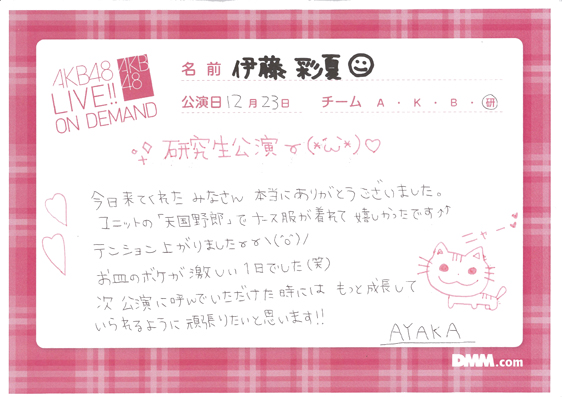 AKB48
LIVE!!
ON DEMAND
AKB
48
名前 伊藤 彩夏
公演日 12月23日 チーム A・K・B・研
研究生公演♉(*´ω`*)♡
今日来てくれた みなさん 本当にありがとうございました。
ユニットの「天国野郎」でナース服が着れて 嬉しかったです♪↑
テンション上がりました♉♉\(^o^)/
お皿のボケが激しい1日でした(笑)
次 公演に呼んでいただけた時には もっと成長して
いられるように頑張りたいと思います!!
ニャー
AYAKA
DMM.com